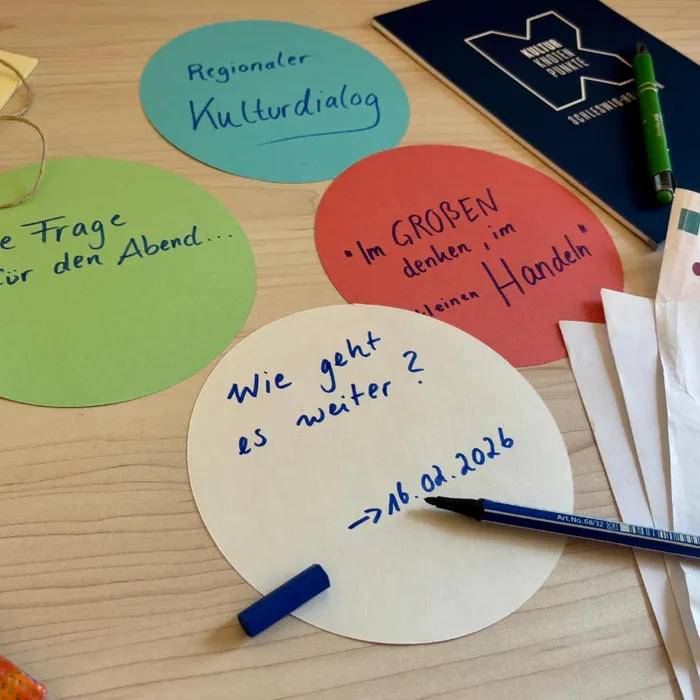 Regionaler
Kulturdialog
KULTUR
KNOTEN
PUNKTE
e Frage
für den Abend...
"Im GROßEN
denken, im
kleinen Handeln"
Wie geht
es weiter?
→ 16.02.2026
Art.No.68/32